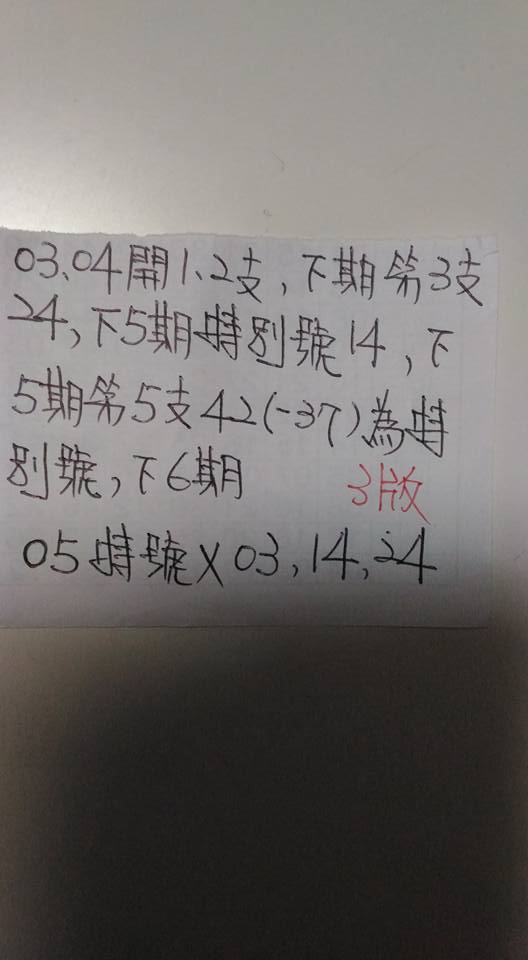 03、04開1、2支, 下期第3支
24, 下5期特別號14, 下
5期第5支42(-37)為特
別號, 下6期
3版
05特號X03, 14, 24